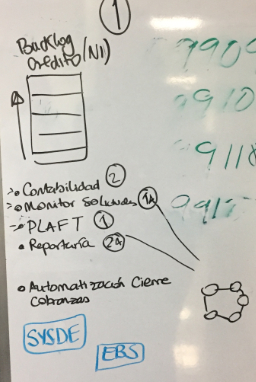 1
Backlog
Crédito (N1)
7909
9910
9118
• Contabilidad 2
• Monitor Solicitudes 1A
• PLAFT 1
• Reportaría 2A
• Automatización Cierre
Cobranzas
SYSDE
EBS